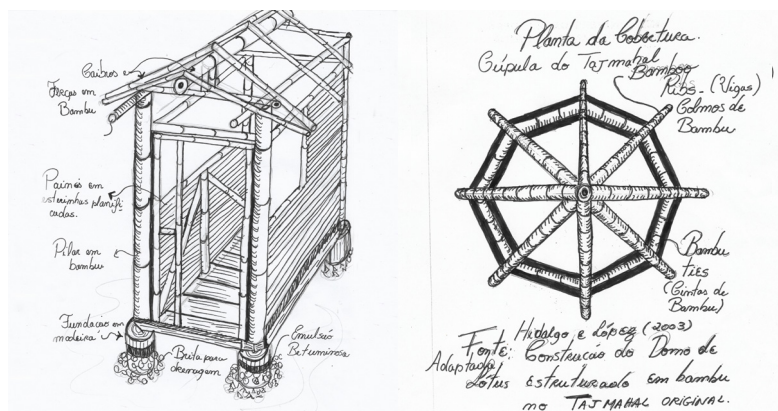 Caibros e
Terças em
Bambu
Painéis em
esterinhas planifi-
cadas.
Pilar em
bambu
Fundação em
madeira
Brita para
drenagem
Emulsão
Betuminosa
Planta da Cobertura.
Cúpula do Tajmahal
Bamboo
Ribs - (Vigas)
Colmos de
Bambu
Bambu
Ties
(Cintas de
Bambu)
Hidalgo e López (2003)
Fonte: Construcão do Domo de
Adaptada
Lótus estruturado em bambu
no TAJ MAHAL ORIGINAL.